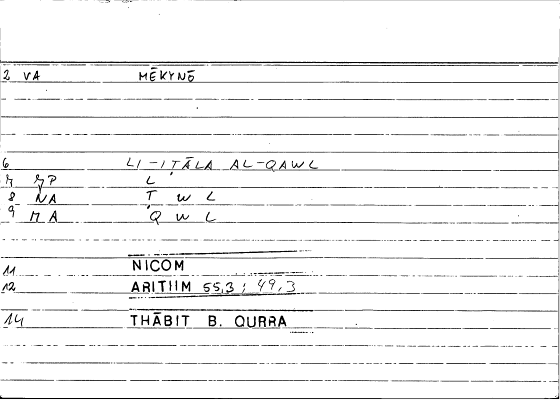 2 VA MĒKYNŌ
6 LI-IṬĀLA AL-QAWL
7 ȜP L
8 NA Ṭ W L
9 MA Q W L
11 NICOM
12 ARITHM 55,3; 49,3
14 THĀBIT B. QURRA